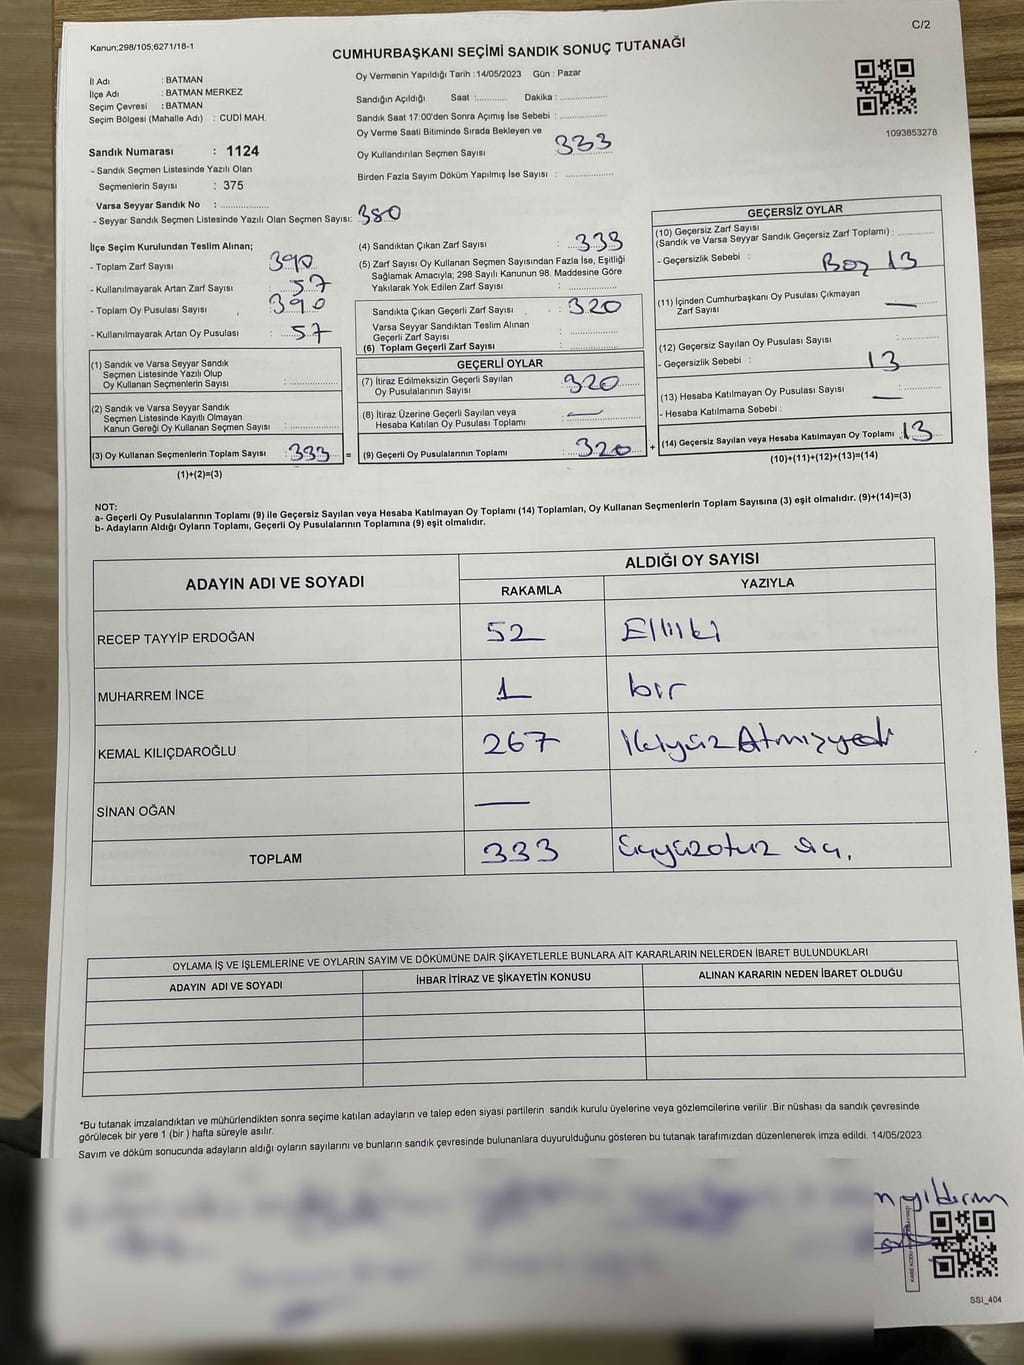 C/2
Kanun;298/105;6271/18-1
CUMHURBAŞKANI SEÇİMİ SANDIK SONUÇ TUTANAĞI
İl Adı : BATMAN
İlçe Adı : BATMAN MERKEZ
Seçim Çevresi : BATMAN
Seçim Bölgesi (Mahalle Adı) : CUDİ MAH.
Oy Vermenin Yapıldığı Tarih : 14/05/2023 Gün : Pazar
Sandığın Açıldığı Saat :........... Dakika : ................
Sandık Saat 17:00'den Sonra Açımış İse Sebebi : ................
Oy Verme Saati Bitiminde Sırada Bekleyen ve
Oy Kullandırılan Seçmen Sayısı 333
Birden Fazla Sayım Döküm Yapılmış İse Sayısı : ................
1093853278
Sandık Numarası : 1124
- Sandık Seçmen Listesinde Yazılı Olan
Seçmenlerin Sayısı : 375
Varsa Seyyar Sandık No : ................
- Seyyar Sandık Seçmen Listesinde Yazılı Olan Seçmen Sayısı: 380
İlçe Seçim Kurulundan Teslim Alınan;
- Toplam Zarf Sayısı 390
- Kullanılmayarak Artan Zarf Sayısı : 57
- Toplam Oy Pusulası Sayısı : 390
- Kullanılmayarak Artan Oy Pusulası : 57
(1) Sandık ve Varsa Seyyar Sandık
Seçmen Listesinde Yazılı Olup
Oy Kullanan Seçmenlerin Sayısı : ................
(2) Sandık ve Varsa Seyyar Sandık
Seçmen Listesinde Kayıtlı Olmayan
Kanun Gereği Oy Kullanan Seçmen Sayısı : ................
(3) Oy Kullanan Seçmenlerin Toplam Sayısı : 333 =
(1)+(2)=(3)
(4) Sandıktan Çıkan Zarf Sayısı : 333
(5) Zarf Sayısı Oy Kullanan Seçmen Sayısından Fazla İse, Eşitliği
Sağlamak Amacıyla; 298 Sayılı Kanunun 98. Maddesine Göre
Yakılarak Yok Edilen Zarf Sayısı : ................
Sandıkta Çıkan Geçerli Zarf Sayısı : 320
Varsa Seyyar Sandıktan Teslim Alınan
Geçerli Zarf Sayısı : ................
(6) Toplam Geçerli Zarf Sayısı : ................
GEÇERLİ OYLAR
(7) İtiraz Edilmeksizin Geçerli Sayılan
Oy Pusulalarının Sayısı : 320
(8) İtiraz Üzerine Geçerli Sayılan veya
Hesaba Katılan Oy Pusulası Toplamı : —
(9) Geçerli Oy Pusulalarının Toplamı : 320 +
GEÇERSİZ OYLAR
(10) Geçersiz Zarf Sayısı
(Sandık ve Varsa Seyyar Sandık Geçersiz Zarf Toplamı) : ................
- Geçersizlik Sebebi : Boş 13
(11) İçinden Cumhurbaşkanı Oy Pusulası Çıkmayan
Zarf Sayısı : —
(12) Geçersiz Sayılan Oy Pusulası Sayısı : ................
- Geçersizlik Sebebi : 13
(13) Hesaba Katılmayan Oy Pusulası Sayısı : ................
- Hesaba Katılmama Sebebi : —
(14) Geçersiz Sayılan veya Hesaba Katılmayan Oy Toplamı 13
(10)+(11)+(12)+(13)=(14)
NOT:
a- Geçerli Oy Pusulalarının Toplamı (9) ile Geçersiz Sayılan veya Hesaba Katılmayan Oy Toplamı (14) Toplamları, Oy Kullanan Seçmenlerin Toplam Sayısına (3) eşit olmalıdır. (9)+(14)=(3)
b- Adayların Aldığı Oyların Toplamı, Geçerli Oy Pusulalarının Toplamına (9) eşit olmalıdır.
ADAYIN ADI VE SOYADI ALDIĞI OY SAYISI
RAKAMLA YAZIYLA
RECEP TAYYİP ERDOĞAN 52 Elliiki
MUHARREM İNCE 1 bir
KEMAL KILIÇDAROĞLU 267 İkiyüz Atmışyedi
SİNAN OĞAN —
TOPLAM 333 üçyüzotuz üç.
OYLAMA İŞ VE İŞLEMLERİNE VE OYLARIN SAYIM VE DÖKÜMÜNE DAİR ŞİKAYETLERLE BUNLARA AİT KARARLARIN NELERDEN İBARET BULUNDUKLARI
ADAYIN ADI VE SOYADI İHBAR İTİRAZ VE ŞİKAYETİN KONUSU ALINAN KARARIN NEDEN İBARET OLDUĞU
*Bu tutanak imzalandıktan ve mühürlendikten sonra seçime katılan adayların ve talep eden siyasi partilerin sandık kurulu üyelerine veya gözlemcilerine verilir .Bir nüshası da sandık çevresinde
görülecek bir yere 1 (bir ) hafta süreyle asılır.
Sayım ve döküm sonucunda adayların aldığı oyların sayılarını ve bunların sandık çevresinde bulunanlara duyurulduğunu gösteren bu tutanak tarafımızdan düzenlenerek imza edildi. 14/05/2023
n yıldırım
SSI_404